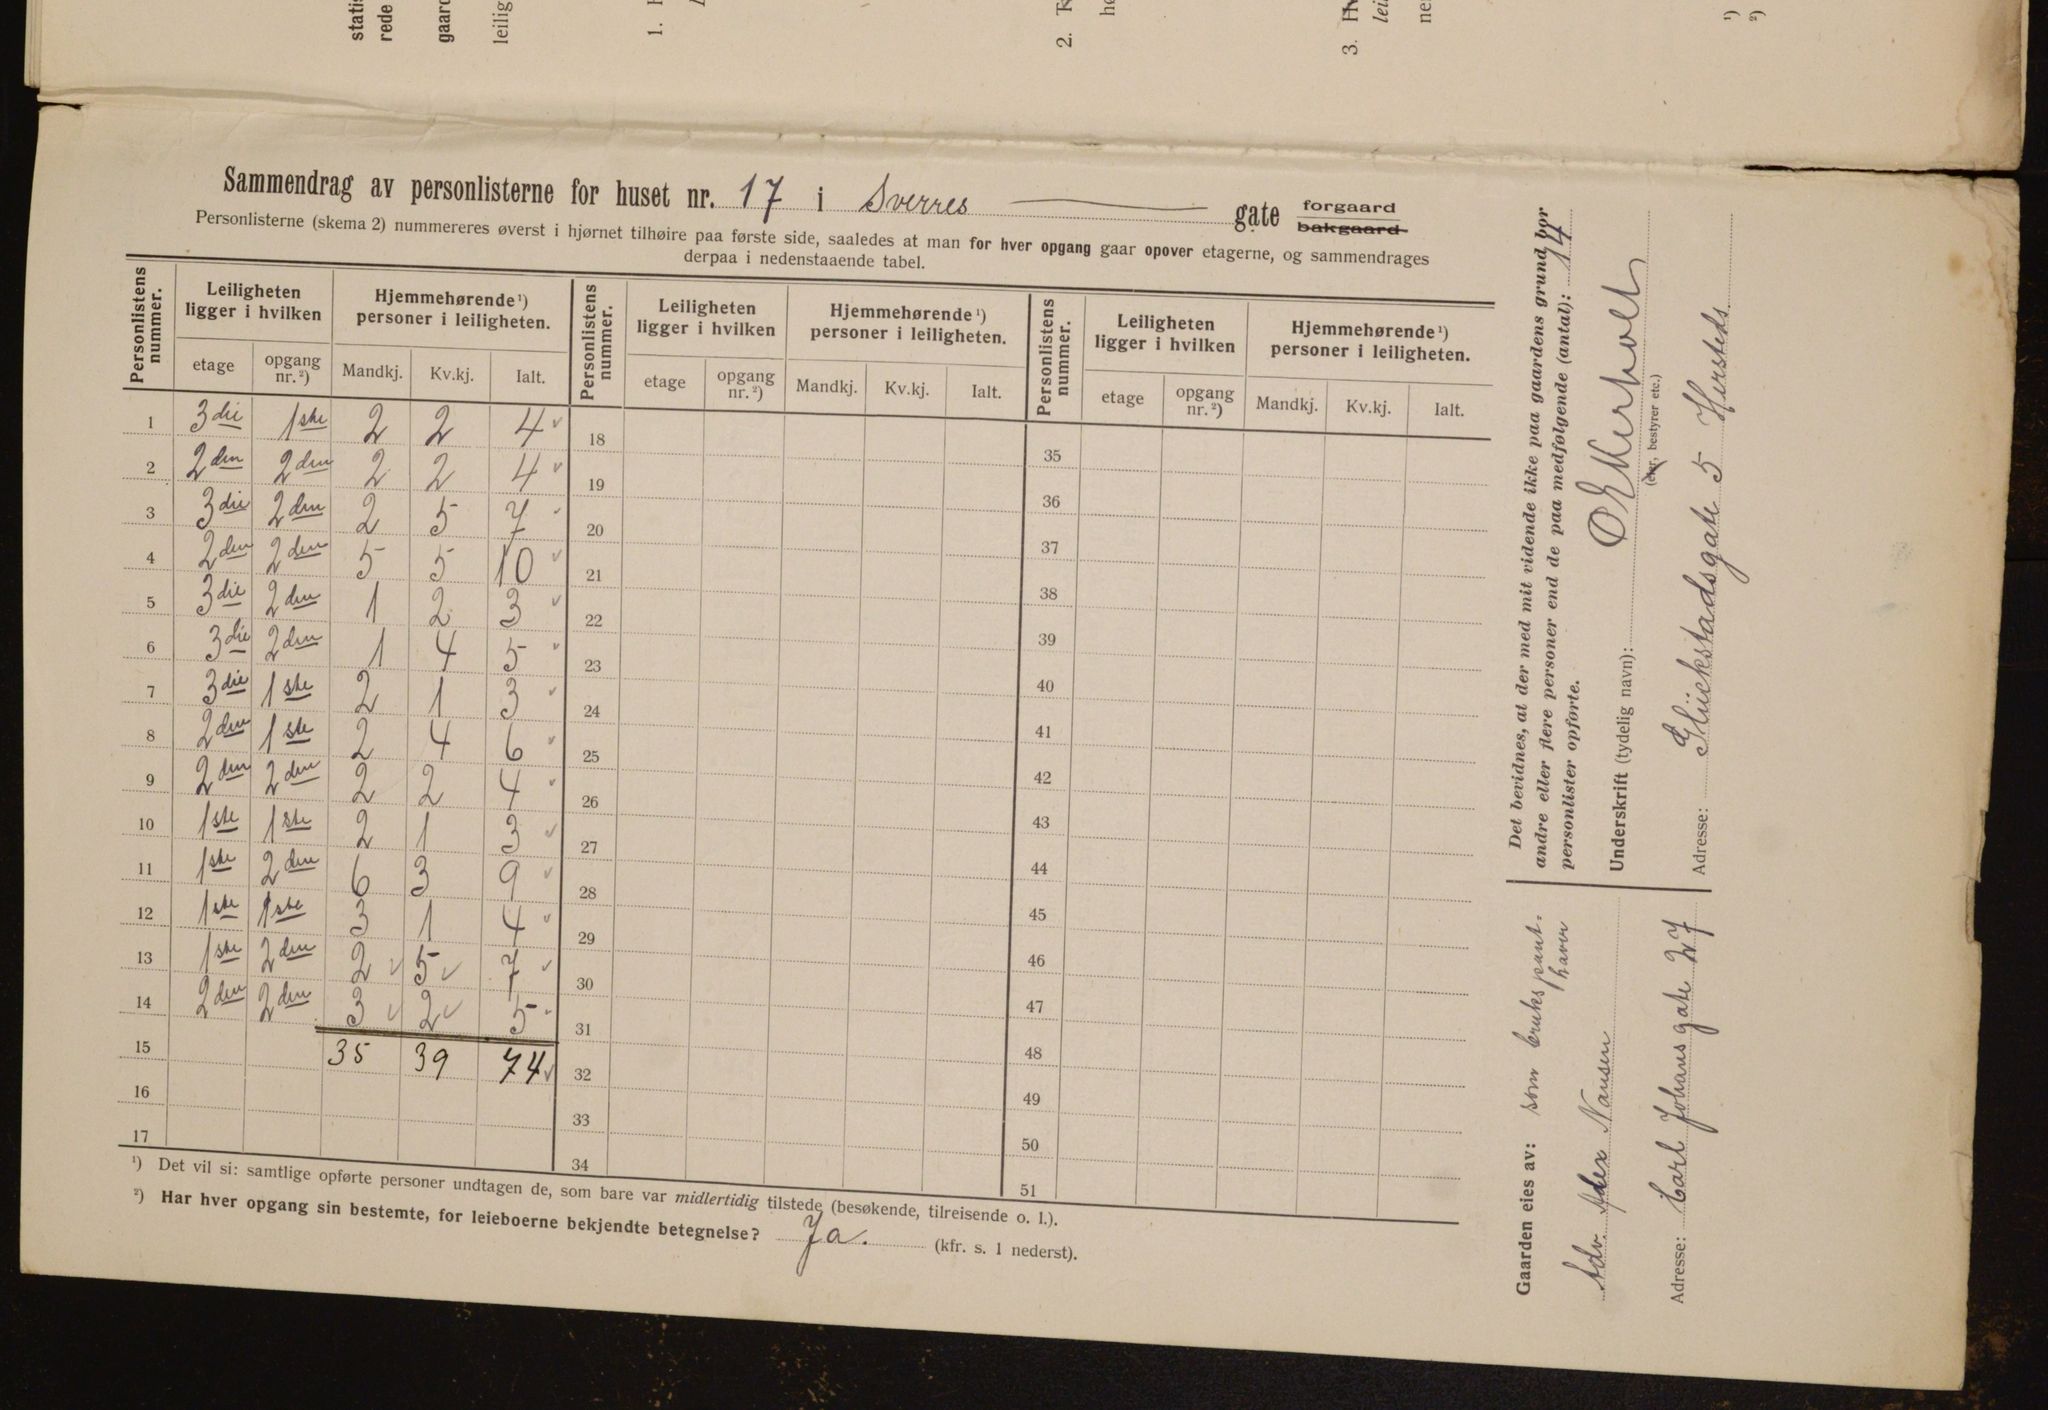 statis
rede
gaard
leilig
1.
2.
3.
lei
ne
1)
2)
Sammendrag av personlisterne for huset nr. 17 i Sverres gate forgaard
bakgaard
Personlisterne (skema 2) nummereres øverst i hjørnet tilhøire paa første side, saaledes at man for hver opgang gaar opover etagerne, og sammendrages
derpaa i nedenstaaende tabel.
Personlistens nummer. Leiligheten ligger i hvilken Hjemmehørende¹) personer i leiligheten. Personlistens nummer. Leiligheten ligger i hvilken Hjemmehørende¹) personer i leiligheten. Personlistens nummer. Leiligheten ligger i hvilken Hjemmehørende¹) personer i leiligheten.
etage opgang nr.²) Mandkj. Kv.kj. Ialt. etage opgang nr.²) Mandkj. Kv.kj. Ialt. etage opgang nr.²) Mandkj. Kv.kj. Ialt.
1 3die 1ste 2 2 4 ✓ 18 35
2 2den 2den 2 2 4 ✓ 19 36
3 3die 2den 2 5 7 ✓ 20 37
4 2den 2den 5 5 10 ✓ 21 38
5 3die 2den 1 2 3 ✓ 22 39
6 3die 2den 1 4 5 ✓ 23 40
7 3die 1ste 2 1 3 ✓ 24 41
8 2den 1ste 2 4 6 ✓ 25 42
9 2den 2den 2 2 4 ✓ 26 43
10 1ste 1ste 2 1 3 ✓ 27 44
11 1ste 2den 6 3 9 ✓ 28 45
12 1ste 1ste 3 1 4 ✓ 29 46
13 1ste 2den 2 ✓ 5 ✓ 7 ✓ 30 47
14 2den 2den 3 ✓ 2 ✓ 5 ✓ 31 48
15 35 39 74 ✓ 32 49
16 33 50
17 34 51
¹) Det vil si: samtlige opførte personer undtagen de, som bare var midlertidig tilstede (besøkende, tilreisende o. l.).
²) Har hver opgang sin bestemte, for leieboerne bekjendte betegnelse? Ja. (kfr. s. 1 nederst).
Det bevidnes, at der med mit vidende ikke paa gaardens grund bor
andre eller flere personer end de paa medfølgende (antal): 14
personlister opførte.
Underskrift (tydelig navn): O E Merholt
(eier, bestyrer etc.)
Adresse: Glückstadsgate 5 Hersteds.
Gaarden eies av: som brukspant-
haver
Adv. Alex Nansen
Adresse: Carl Johans gate 27